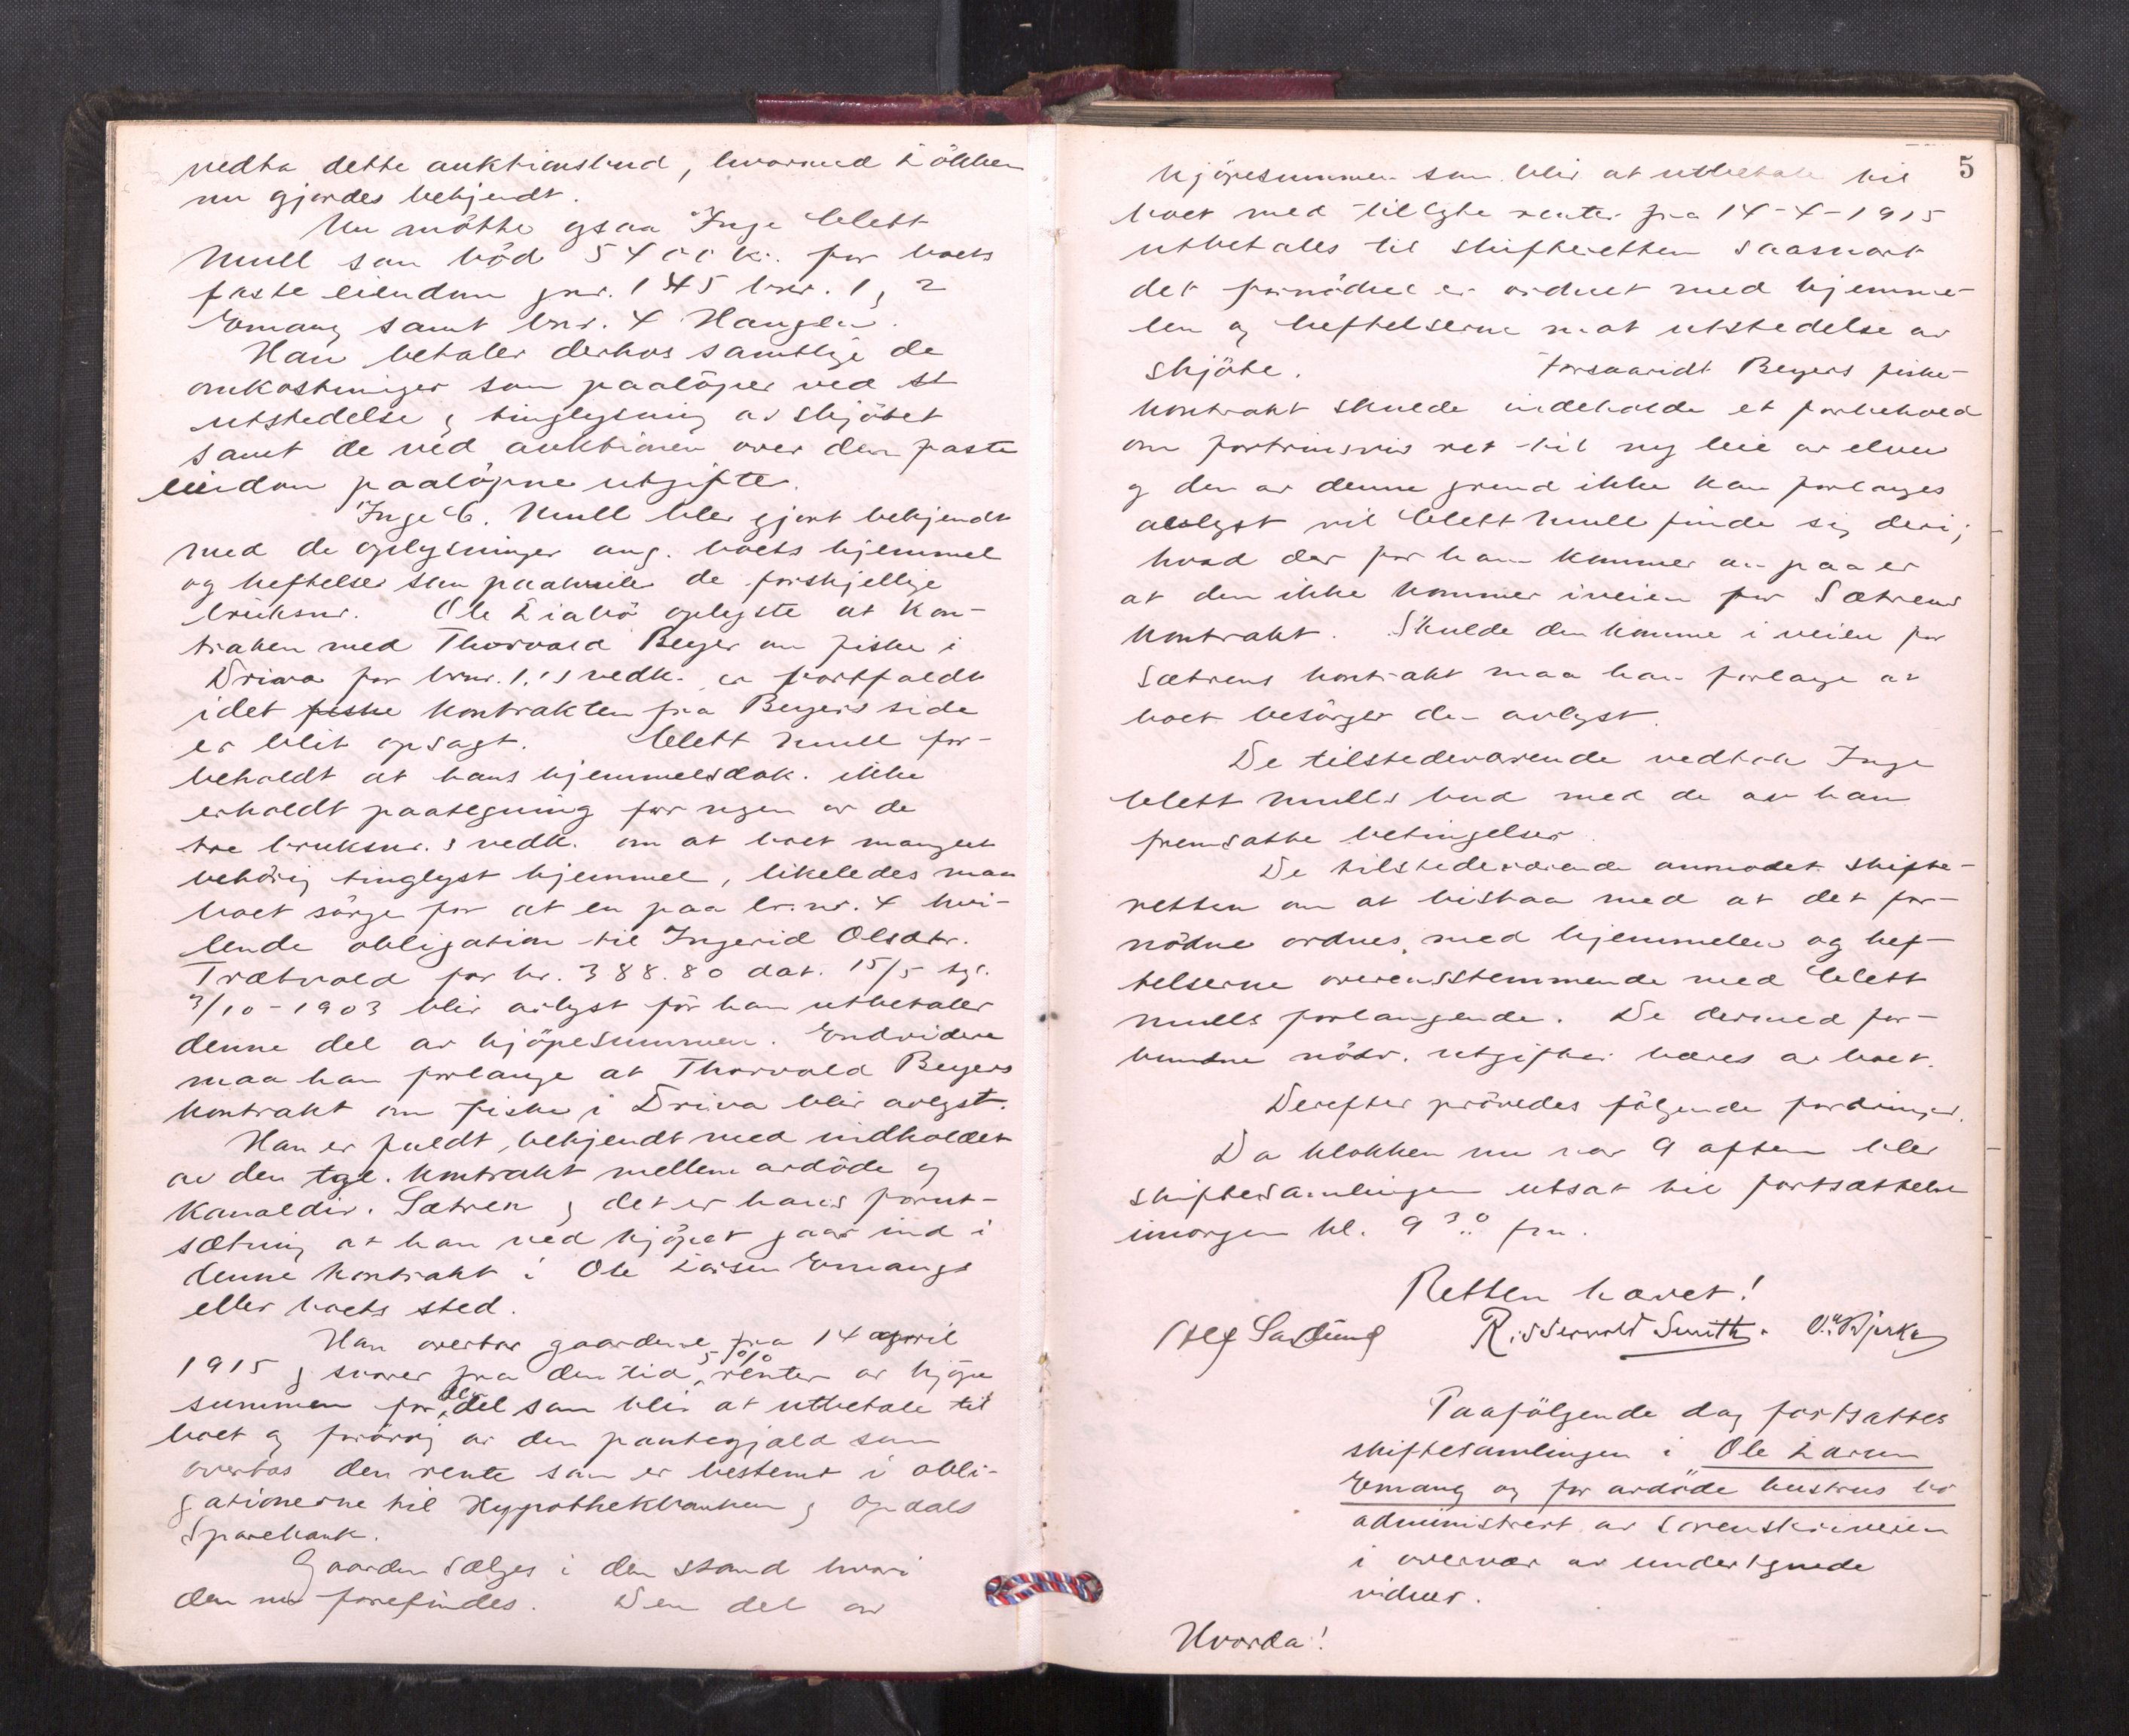 vedta dette auktionsbud, hvormed Løkken
nu gjordes bekjendt.
Nu møtte ogsaa Inge Clett
Mull som bød 5400 kr. for boets
faste eiendom gnr. 145 bnr. 1, 2
Emaug samt bnr. 4 Haugen.
Han betaler derhos samtlige de
omkostninger som paaløper ved
utstedelse og tinglysning av skjøtet
samt de ved auktionen over den faste
eiendom paaløpne utgifter.
Inge C. Mull blev gjort bekjendt
med de oplysninger ang. boets hjemmel
og heftelser som paahviler de forskjellige
bruksnr. Ole Liabø oplyste at kon-
trakten med Thorvald Beyer om fiske i
Driva for bnr. 1's vedk. er bortfaldt
idet fiske kontrakten fra Beyers side
er blit opsagt. Clett Mull for-
beholdt at hans hjemmelsdok. ikke
erholdt paategning for nogen av de
tre bruksnr.s vedk. om at boet manglet
behørig tinglyst hjemmel, likeledes maa
boet sørge for at en paa br.nr. 4 hvi-
lende obligation til Ingerid Olsdtr.
Trætvold for kr. 388.80 dat. 15/5 tgl.
3/10-1903 blir avlyst før han utbetaler
denne del av kjøpesummen. Endvidere
maa han forlange at Thorvald Beyers
kontrakt om fiske i Driva blir avlyst.
Han er fuldt bekjendt med indholdet
av den tgl. kontrakt mellem avdøde og
Kanaldir. Sætren og det er hans forut-
sætning at han ved kjøpet gaar ind i
denne kontrakt i Ole Larsen Emaugs
eller boets sted.
Han overtar gaardene fra 14 april
1915 og svarer fra den tid 5 % renter av kjøpe
summen for den del som blir at utbetale til
boet og forøvrig av den pantegjæld som
overtas den rente som er bestemt i obli-
gationerne til Hyppothekbanken og Opdals
Sparebank.
Gaarden sælges i den stand hvori
den nu forefindes. Den del av
5
kjøpesummen som blir at utbetale til
boet med tillagte renter fra 14-4-1915
utbetales til skifteretten saasnart
det fornødne er ordnet med hjemme-
len og heftelserne mot utstedelse av
skjøte. Forsaavidt Beyers fiske-
kontrakt skulde indeholde et forbehold
om fortrinsvis ret til ny leie av elven
og den av denne grund ikke kan forlanges
avlyst vil Clett Mull finde sig deri;
hvad der for ham kommer an paa er
at den ikke kommer iveien for Sætrens
kontrakt. Skulde den komme i veien for
Sætrens kontrakt maa han forlange at
boet besørger den avlyst.
De tilstedeværende vedtok Inge
Clett Mulls bud med de av ham
fremsatte betingelser.
De tilstedeværende anmodet skifte-
retten om at bistaa med at det for-
nødne ordnes med hjemmelen og hef-
telserne overensstemmende med Clett
Mulls forlangende. De dermed for-
bundne nødv. utgifter bæres av boet.
Derefter prøvedes følgende fordringer.
Da klokken nu var 9 aften blev
skiftesamlingen utsat til fortsættelse
imorgen kl. 9 30 fm.
Retten hævet!
R. Sserwold Smith. O. Bjerke
Paafølgende dag fortsattes
skiftesamlingen i Ole Larsen
Emaug og for avdøde hustrus bo
administrert av sorenskriveren
i overvær av undertegnede
vidner.
Hvorda!